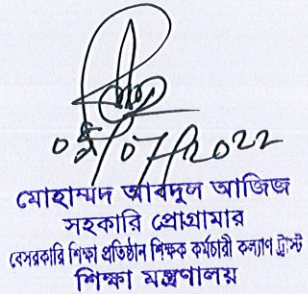 ০৪/০৭/২০২২
মোহাম্মদ আবদুল আজিজ
সহকারি প্রোগ্রামার
বেসরকারি শিক্ষা প্রতিষ্ঠান শিক্ষক কর্মচারী কল্যাণ ট্রাস্ট
শিক্ষা মন্ত্রণালয়